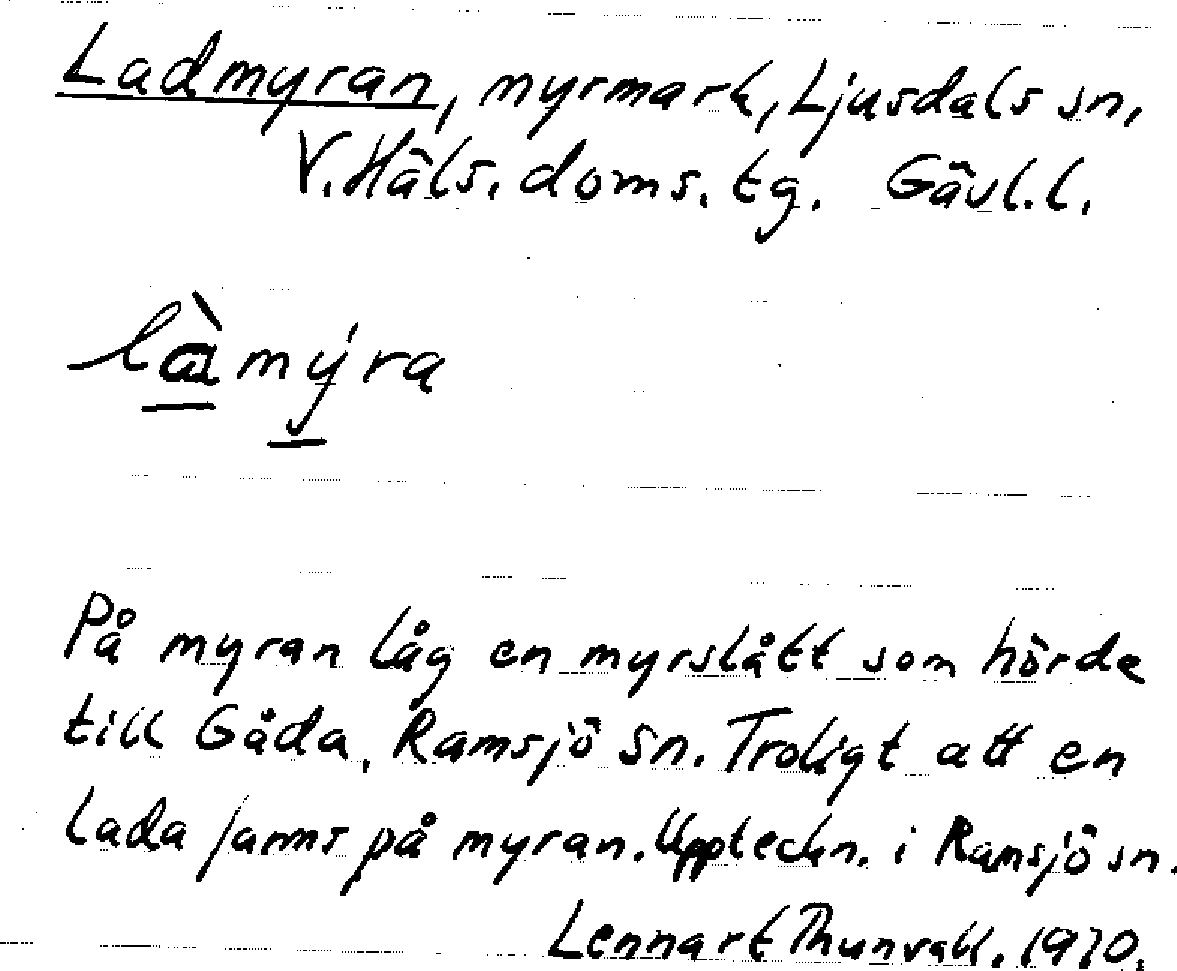 Ladmyran, myrmark, Ljusdals sn,
V. Häls. doms. tg. Gävl. l.
làmýra
På myran låg en myrslått som hörde
till Gåda, Ramsjö sn. Troligt att en
lada fanns på myran. Uppteckn. i Ramsjö sn.
Lennart Thunvall. 1970.